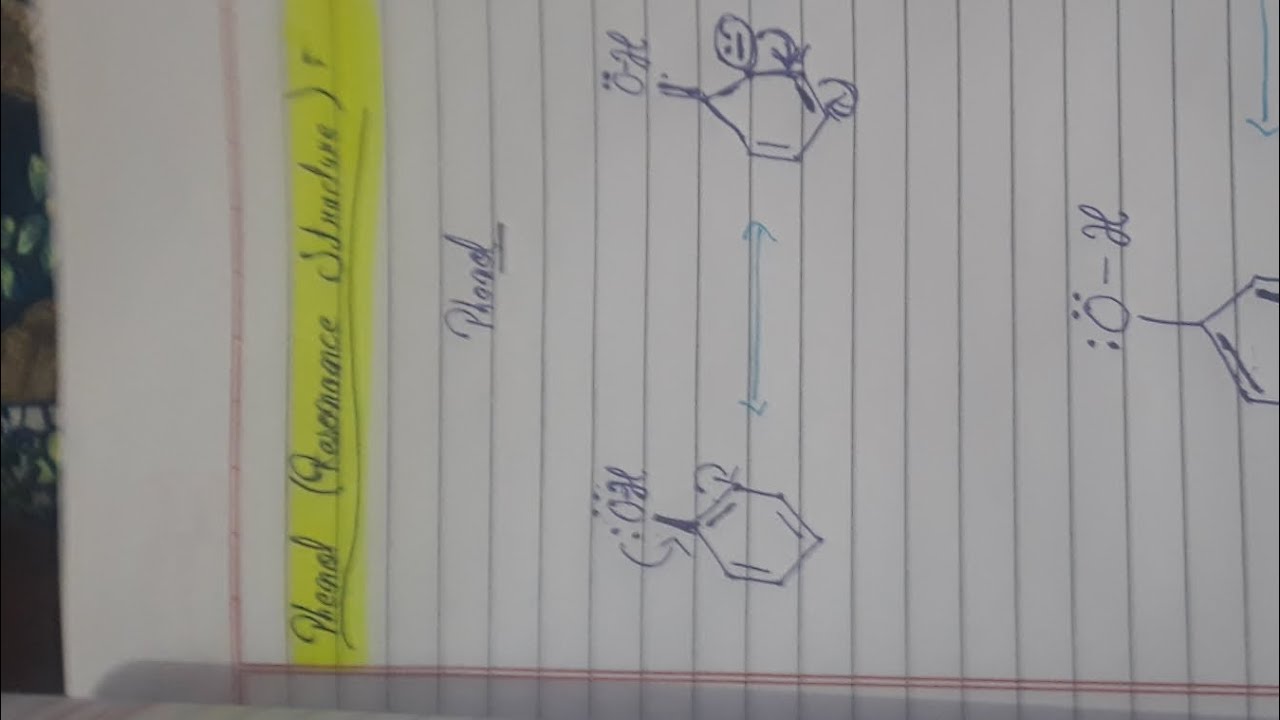 Phenol (Resonance Structure) :
Phenol
:Ö-H
Ö-H
:Ö-H